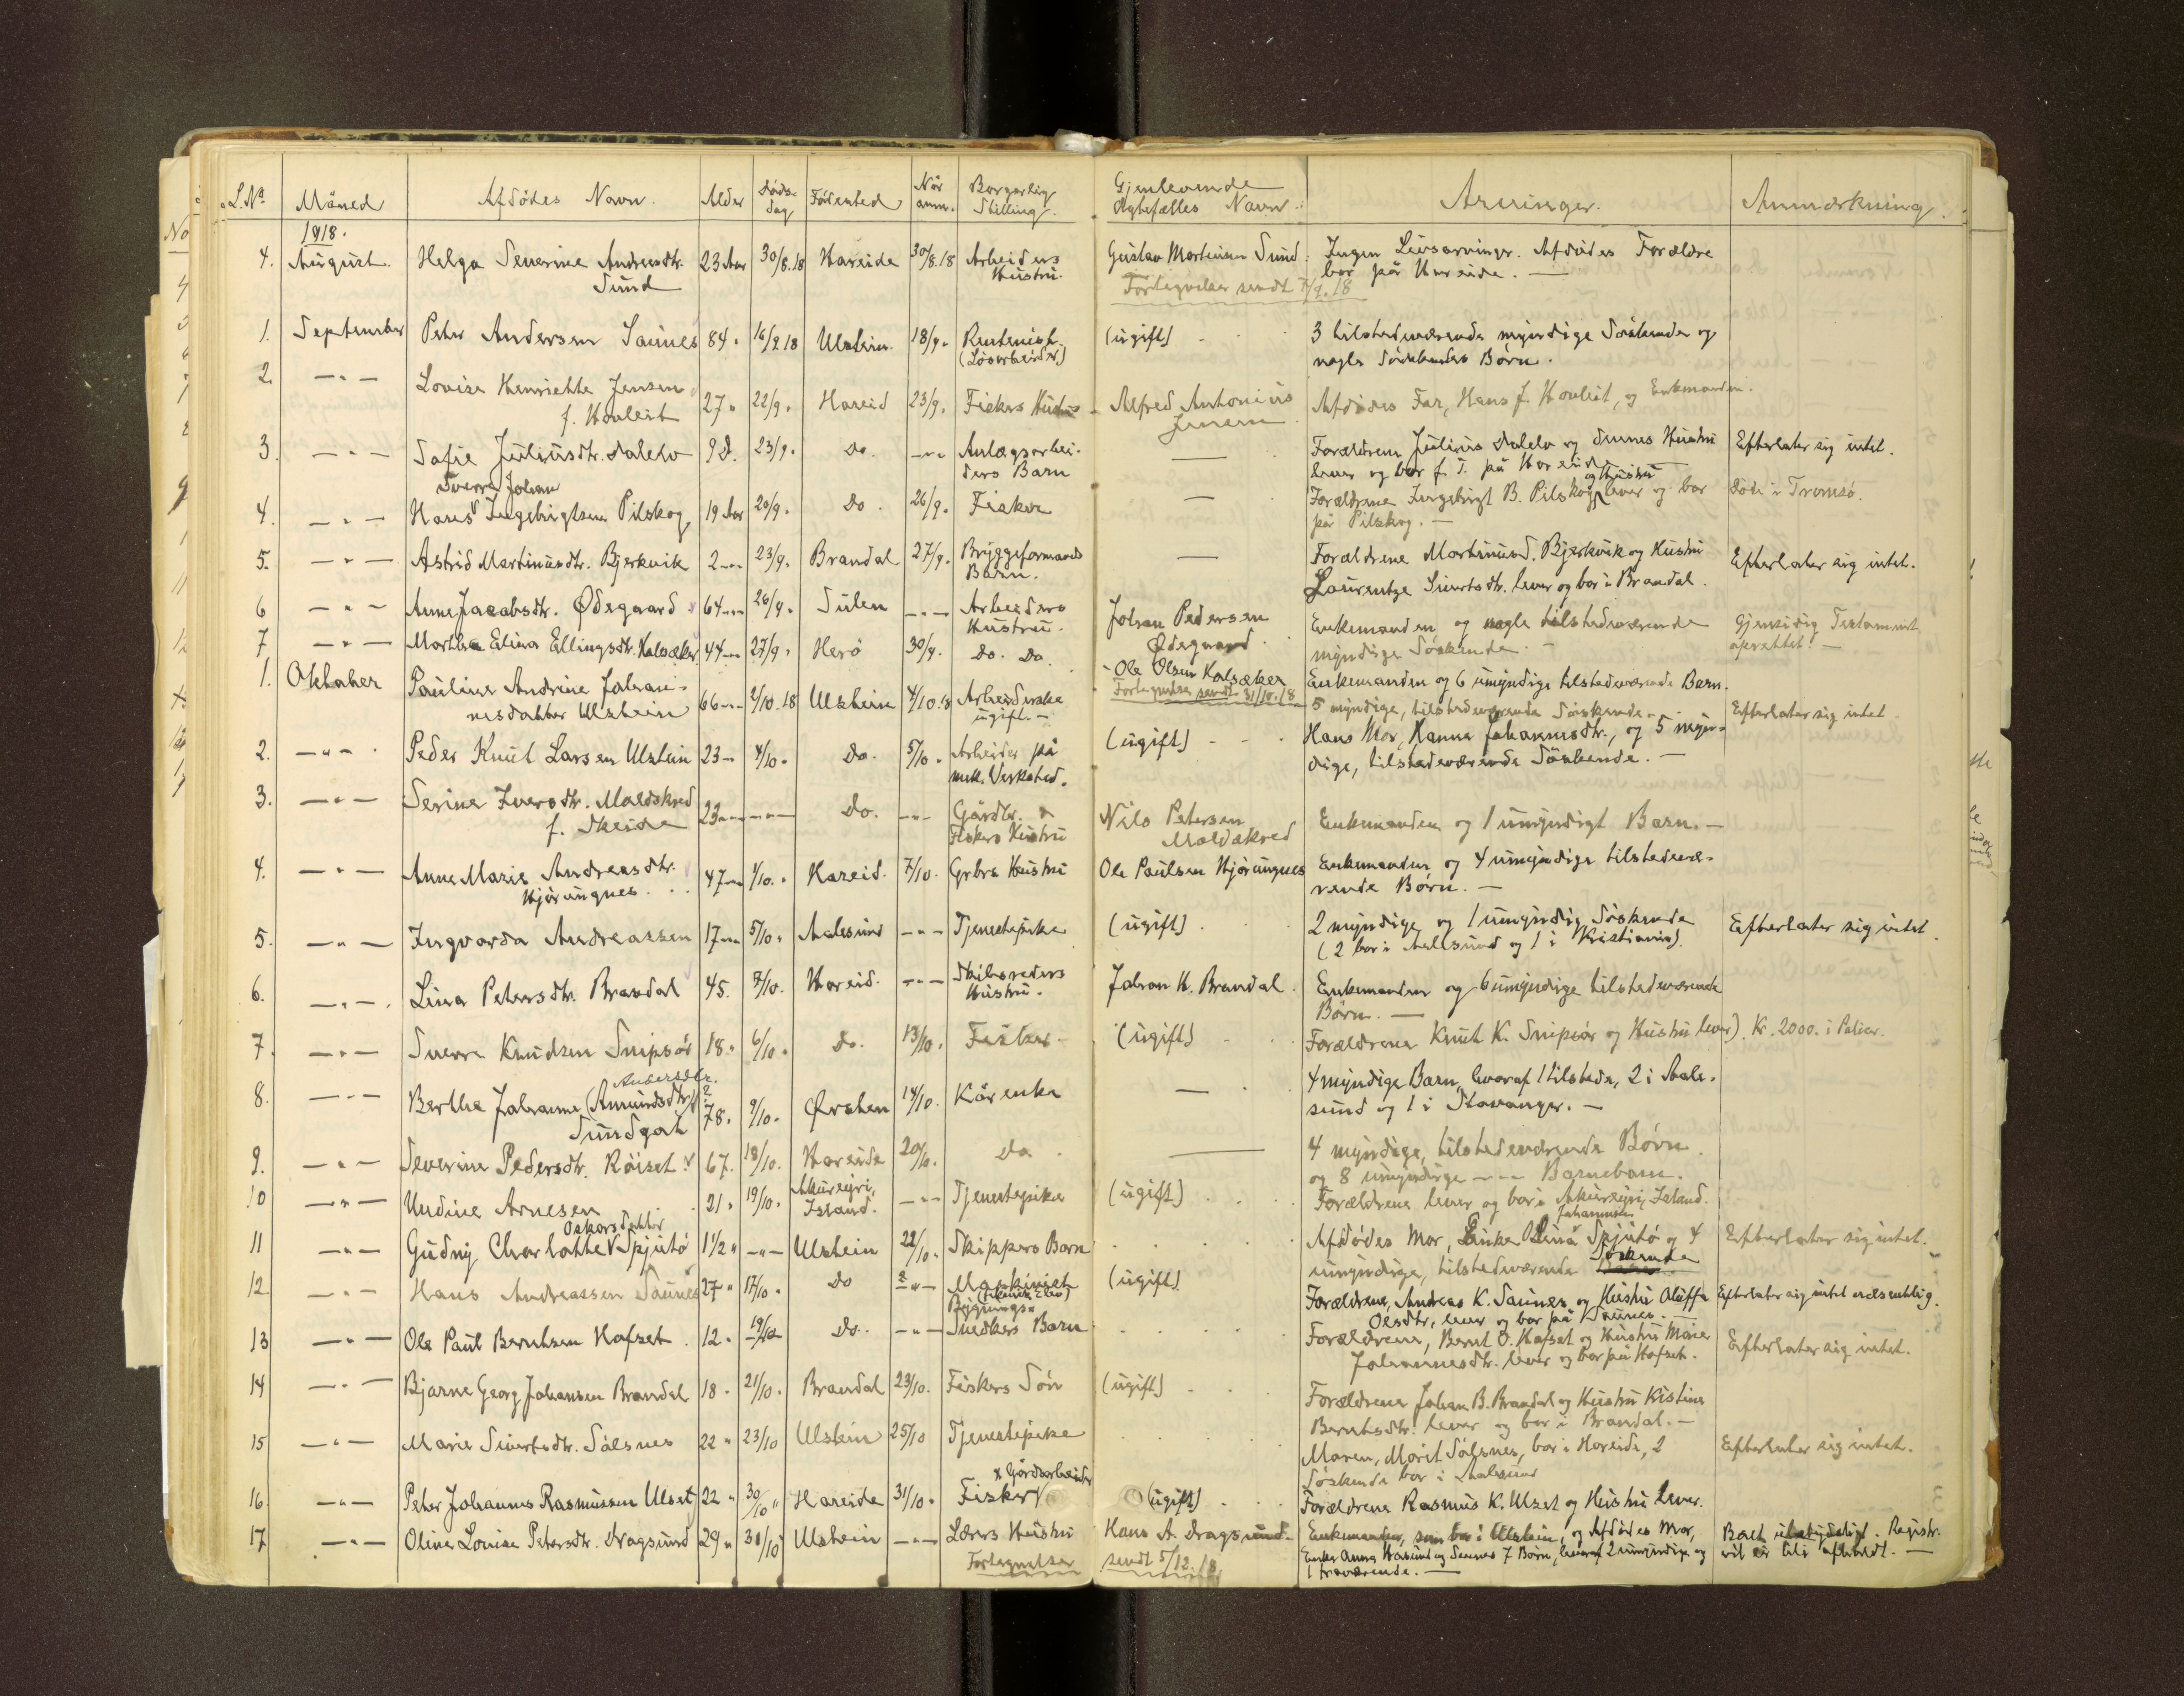 L.No. Måned Afdödes Navn. Alder Døds-dag Fødested Når anm. Borgerlig Stilling. Gjenlevende Ægtefælles Navn. Arvinger. Anmærkning.
1918.
4. August. Helga Severine Andreasdtr. 23 Aar 30/8.18 Hareide 30/8.18 Arbeiders Gustav Mortensen Sund. Ingen Livsarvinger. Afdödes Forældre
Sund Hustru. bor på Hareide. —
Fortegnelse sendt 7/9.18
1. September Peter Andersen Saunes 84 " 16/9.18 Ulstein. 18/9 " Rentenist. (ugift) 3 tilstedeværende myndige Söskende og
(Løsarbeider) nogle Söskendes Børn.
2. — " — Lovise Henriette Jensen 27 " 22/9 " Hareid 23/9. Fiskers Hustru Alfred Antonius Afdödes Far, Hans J. Hovlid, og Enkemanden.
f. Hovlid Jensen
3. — " — Sofie Juliusdtr. Dalelv 9 D. 23/9 " Do. — " — Anlægsarbei- — Forældrene Julius Dalelv og dennes Hustru Efterlater sig intet.
ders Barn lever og bor f. T. på Hareide
Sverre Johan og Hustru
4. — " — Hans Ingebrigtsen Pilskog 19 Aar 20/9 " Do. 26/9 " Fisker — Forældrene Ingebrigt B. Pilskog lever og bor Död i Tromsø.
på Pilskog. —
5. — " — Astrid Martinusdtr. Bjerkvik 2 — " — 23/9 " Brandal 27/9. Bryggeformands — Forældrene Martinus J. Bjerkvik og Hustru Efterlater sig intet.
Barn. Laurentze Sivertsdtr. lever og bor i Brandal.
6 — " — Anne Jacobsdtr. Ødegaard 64 — " — 26/9 " Sulen — " — Arbeiders Johan Pedersen Enkemanden og nogle tilstedeværende Gjensidig Testament
Hustru. Ødegaard. myndige Söskende. — oprettet. —
7 — " — Marthea Elina Ellingsdtr. Kalsæker 44 — " — 27/9 " Herö 30/9. Do. Do. Ole Olsen Kalsæker Enkemanden og 6 umyndige tilstedeværende Børn.
Fortegnelse sendt 31/10.18
1. Oktober Pauline Andrine Johan- 66 — " — 2/10.18 Ulstein 4/10.18 Arbeiderske 5 myndige, tilstedeværende Söskende. Efterlater sig intet.
nesdatter Ulstein ugift. —
2. — " — Peder Knut Larsen Ulstein 23 — " 4/10 " Do. 5/10 " Arbeider på (ugift) Hans Mor, Hanna Johannesdtr., og 5 myn-
mek. Verksted. dige, tilstedeværende Söskende. —
3. — " — Serine Iversdtr. Moldskred 23 — " — — " — Do. — " — Gårdbr. & Nils Petersen Enkemanden og 1 umyndigt Barn. —
f. Skeide Fiskers Hustru Moldskred
4. — " — Anne Marie Andreasdtr. 47 — " — 1/10 " Hareid. 7/10. Grbrs Hustru Ole Paulsen Hjørungnes Enkemanden og 4 umyndige tilstedevæ-
Hjørungnes. rende Børn. —
5. — " — Ingvarda Andreassen 17 — " — 5/10 " Aalesund — " — Tjenestepike (ugift) 2 myndige og 1 umyndig Söskende Efterlater sig intet.
(2 bor i Aalesund og 1 i Kristiania).
6. — " — Lina Petersdtr. Brandal 45. 7/10. Hareid. — " — Skibsreders Johan H. Brandal. Enkemanden og 6 umyndige tilstedeværende
Hustru. Børn. —
7. — " — Sverre Knudsen Snipsør 18 " 6/10 " Do. 13/10. Fisker (ugift) Forældrene Knut K. Snipsør og Hustru lever). Kr. 2000. i Polise.
Andersdtr.
8. — " — Berthe Johanne (Amundsdtr.)? 78 " 9/10 " Ørsten 14/10. Kårenke — 4 myndige Børn, hvoraf 1 tilstede, 2 i Aale-
Sundgot sund og 1 i Stavanger. —
9. — " — Severine Pedersdtr. Röiset 67. 18/10. Hareide 20/10. Do. — 4 myndige, tilstedeværende Børn.
og 8 umyndige — " — Barnebarn.
10 — " — Undine Arnesen 21 " 19/10 " Akureyri, Island. — " — Tjenestepike (ugift) Forældrene lever og bor i Akureyri, Island.
Oskarsdatter Johannesen
11 — " — Gudny Charlotte Spjutø 1 1/2 " — " — Ulstein 22/10. Skippers Barn Afdödes Mor, Enke Lina Spjutø og 4 Efterlater sig intet.
umyndige, tilstedeværende Söskende
12. — " — Hans Andreassen Saunes 27 " 17/10 " Do — " — Maskinist (ugift) Forældrene, Andreas K. Saunes og Hustru Oluffa Efterlater sig intet væsentlig.
Olsdtr, lever og bor på Saunes. —
13 — " — Ole Paul Berntsen Hafset. 12 " 19/10 Do. — " — Bygnings-Snedkers Barn Forældrene, Bernt O. Hafset og Hustru Marie Efterlater sig intet.
Johannesdtr. lever og bor på Hafset.
14 — " — Bjarne Georg Johansen Brandal 18 " 21/10 " Brandal 23/10. Fiskers Søn (ugift) Forældrene Johan B. Brandal og Hustru Kistine
Berntsdtr. lever og bor i Brandal. —
15 — " — Marie Sivertsdtr. Sålsnes 22 " 23/10 Ulstein 25/10 Tjenestepike Moren, Marit Sålsnes, bor i Hareide, 2 Efterlater sig intet.
Söskende bor i Aalesund
16. — " — Peter Johannes Rasmussen Ulset 22 " 30/10 " Hareide 31/10 " Fisker & Gårdsarbeider (ugift) Forældrene Rasmus K. Ulset og Hustru lever.
17. — " — Oline Lovise Petersdtr. Dragsund 29 " 30/10 Ulstein — " — Lærers Hustru Hans A. Dragsund. Enkemanden, som bor i Ulstein, og Afdödes Mor, Boet ubetydeligt. Registr.
Enke Anna Hasund og dennes 7 Børn, hvoraf 2 umyndige og vil ei bli afholdt. —
1 fraværende. —
Fortegnelse sendt 5/12.18